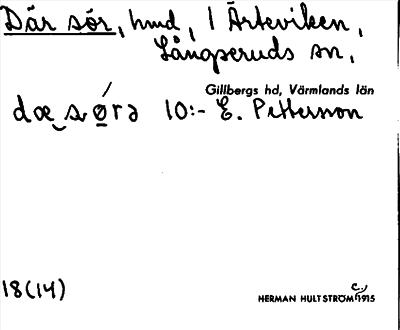 Där sör, hmd, i Ärteviken,
Långseruds sn,
Gillbergs hd, Värmlands län
10:- E. Pettersson
18(14)
HERMAN HULTSTRÖM C. 1915